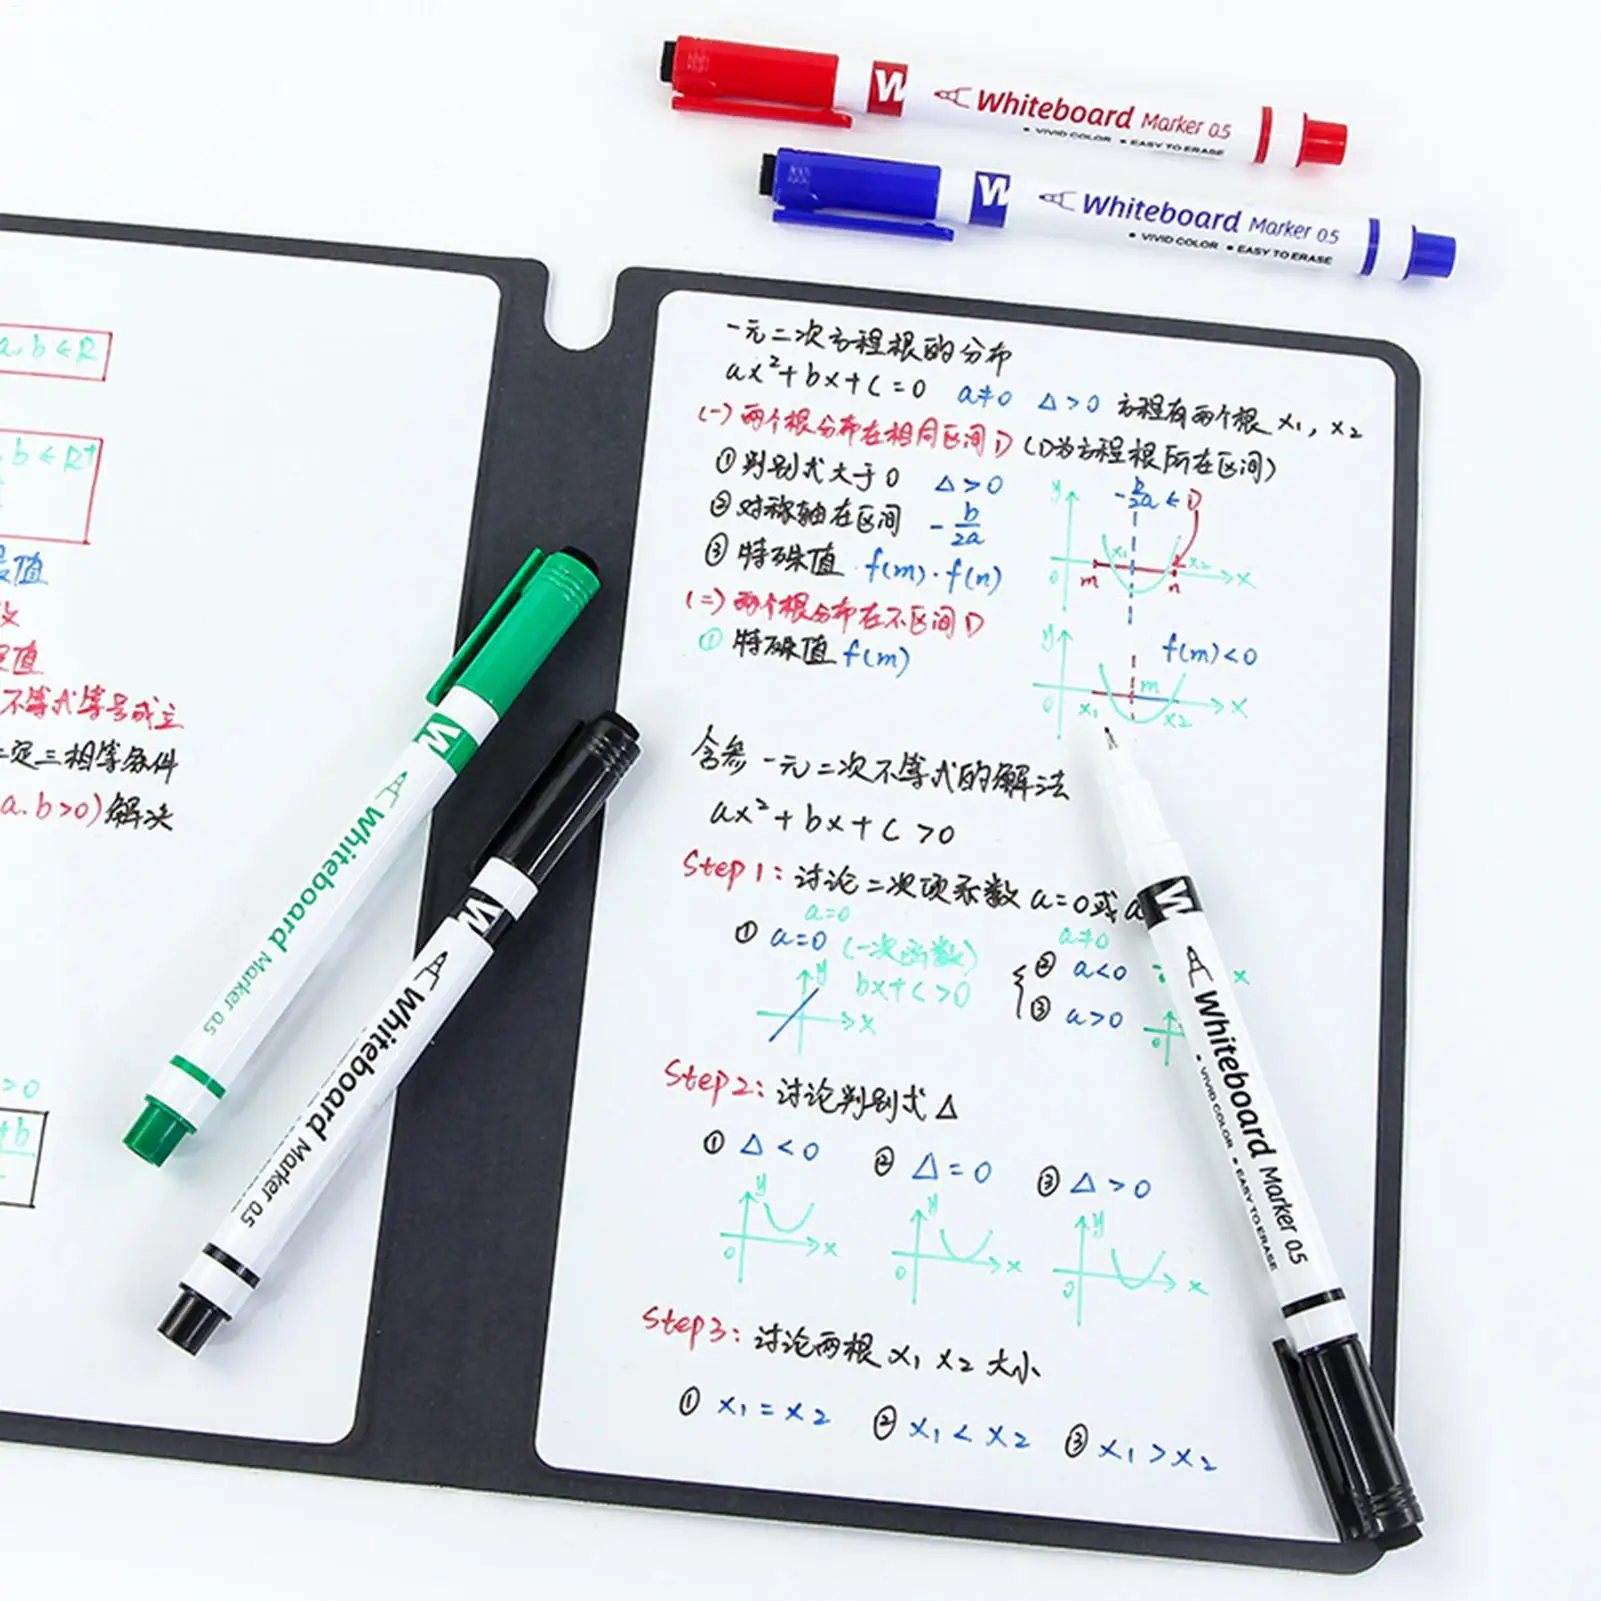 W Whiteboard Marker 0.5
• VIVID COLOR • EASY TO ERASE
W Whiteboard Marker 0.5
• VIVID COLOR • EASY TO ERASE
a, b ∈ R
b ∈ R⁺
值
值
不等式等号成立
定三相等条件
a.b>0)解决
>0
+b
W Whiteboard Marker 0.5
W Whiteboard Marker 0.5
一元二次方程根的分布
ax²+bx+c=0 a≠0 Δ>0 方程有两个根 x₁, x₂
(一)两个根分布在相同区间D(D为方程根所在区间)
①判别式大于0 Δ>0
②对称轴在区间 -b/2a
③特殊值 f(m)·f(n)
y -b/2a ∈ D
x₁ x₂
0 m n x
(二)两个根分布在不区间D
①特殊值 f(m)
y f(m)<0
m
0 x₁ x₂ x
含参一元二次不等式的解法
ax²+bx+c>0
Step1:讨论二次项系数 a=0或a
a=0 a≠0
①a=0(一次函数) ②a<0
bx+c>0 ③a>0
y x
x
0
Step2:讨论判别式Δ
①Δ<0 ②Δ=0 ③Δ>0
y y y
0 x 0 x 0 x
Step3:讨论两根 x₁ x₂ 大小
①x₁=x₂ ②x₁<x₂ ③x₁>x₂
W Whiteboard Marker 0.5
• VIVID COLOR • EASY TO ERASE